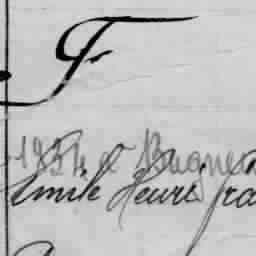 F
1854 à Bagne
Emile Henri fra